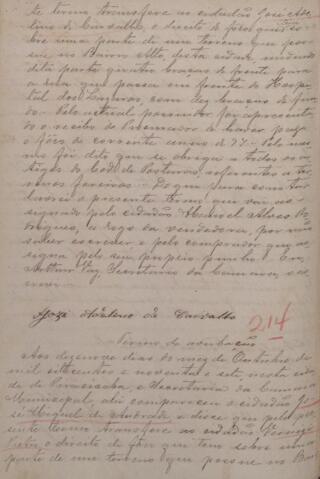 te termo transfere ao cidadão José Ade-
lino de Carvalho o direito de fôro que so-
bre uma parte de um terreno que pos-
sue no Bairro Alto, desta cidade, medindo
dita parte quatro braças de frente para
a rua que passa em frente do Hospi-
tal dos Lazaros, com dez braças de fun-
do. Pelo actual possuidor foi apresenta-
do o recibo do Procurador de haver pago
o fôro do corrente anno de 97. Pelo mes-
mo foi dito que se obriga a todos os ar-
tigos do Cod. de Posturas, referentes a ter-
renos foreiros. Do que para constar
lavrei o presente termo, que vai as-
signado pelo cidadão Manoel Alves Ro-
drigues, a rogo da vendedora, por não
saber escrever e pelo comprador que as-
signa pelo seu proprio punho. Eu,
Arthur Vaz, Secretario da Camara, es-
crevi.
José Adelino de Carvalho
214
Termo de
Aos dezenove dias do mez de Outubro de
mil oitocentos e noventa e sete nesta cida-
de de Piracicaba, e Secretaria da Camara
Municipal, ahi compareceu o cidadão Jo-
sé Miguel de Andrade e disse que pelo pre-
sente termo transfere ao cidadão
o direito de fôro que tem sobre uma
parte de um terreno que possue no Bair